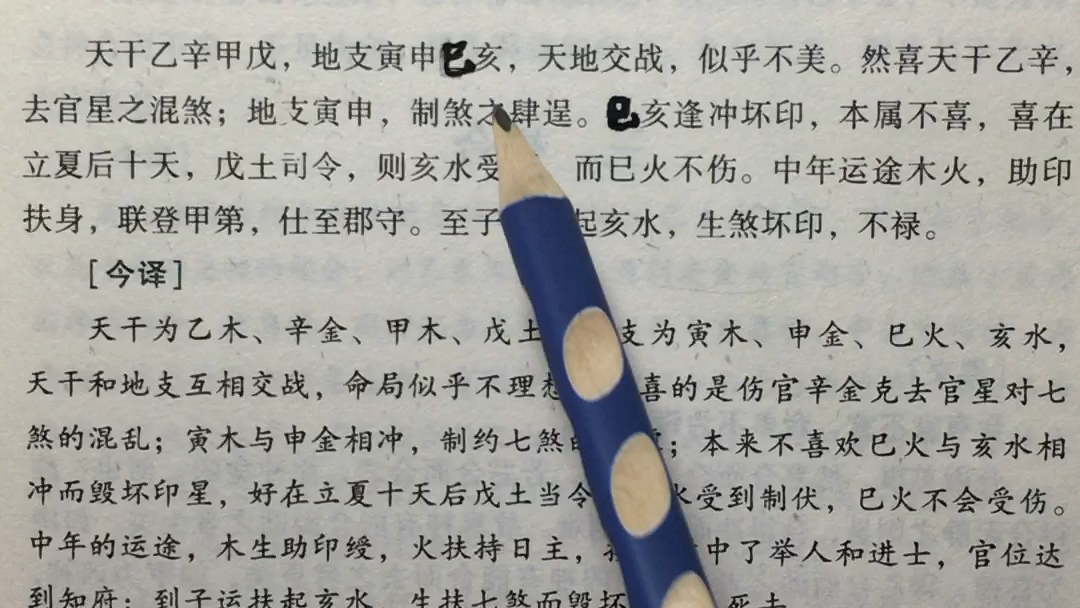 天干乙辛甲戊，地支寅申巳亥，天地交战，似乎不美。然喜天干乙辛，
去官星之混煞；地支寅申，制煞之肆逞。巳亥逢冲坏印，本属不喜，喜在
立夏后十天，戊土司令，则亥水受 而巳火不伤。中年运途木火，助印
扶身，联登甲第，仕至郡守。至子 起亥水，生煞坏印，不禄。
［今译］
天干为乙木、辛金、甲木、戊土 支为寅木、申金、巳火、亥水，
天干和地支互相交战，命局似乎不理想 喜的是伤官辛金克去官星对七
煞的混乱；寅木与申金相冲，制约七煞 ；本来不喜欢巳火与亥水相
冲而毁坏印星，好在立夏十天后戊土当令 水受到制伏，巳火不会受伤。
中年的运途，木生助印绶，火扶持日主， 中了举人和进士，官位达
到知府；到子运扶起亥水，生扶七煞而毁坏 死去